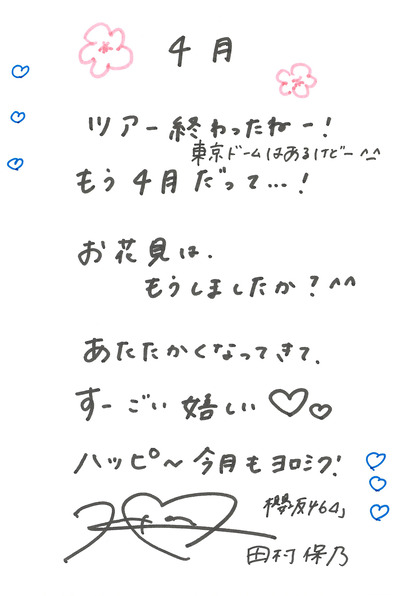 4月
ツアー終わったねー!
東京ドームはあるけどー^_^
もう4月だって…!
お花見は、
もうしましたか?^^
あたたかくなってきて、
すーごい嬉しい♡♡
ハッピ〜今月もヨロシク!
櫻坂46♩
田村保乃